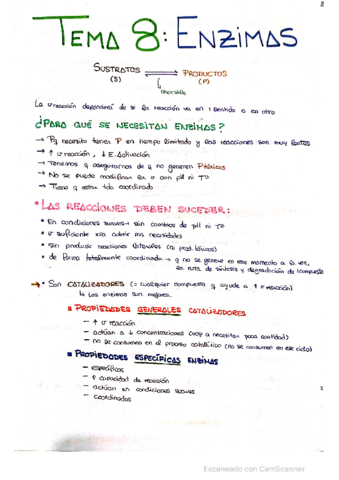 TEMA 8: ENZIMAS
SUSTRATOS ⇌ PRODUCTOS
(S) (P)
reversible
La v reacción dependerá de si la reacción va en 1 sentido o en otro
¿PARA QUÉ SE NECESITAN ENZIMAS?
→ Pq necesito tener P en tiempo limitado y las reacciones son muy lentas
→ ↑ v reacción, ↓ E. Activación
→ Tenemos q asegurarnos de q no generen P tóxicos
→ No se puede modificar la v con pH ni Tº
→ Tiene q estar tdo coordinado
• LAS REACCIONES DEBEN SUCEDER:
• En condiciones suaves → sin cambios de pH ni Tº
• v suficiente xra cubrir mis necesidades
• sin producir reacciones laterales (ni prod. tóxicos)
• de forma totalmente coordinada → q no se genere en ese momento a la vez,
en ruta de síntesis y degradación de compuesto
→ • Son CATALIZADORES (= cualquier compuesto q ayuda a ↑ v reacción)
↳ Las enzimas son mejores.
▪ PROPIEDADES GENERALES CATALIZADORES
– ↑ v reacción
– actúan a ↓ concentraciones (voy a necesitar poca cantidad)
– no se consumen en el proceso catalítico (no se consumen en ese ciclo)
▪ PROPIEDADES ESPECÍFICAS ENZIMAS
– específicas
– ↑ capacidad de reacción
– actúan en condiciones suaves
– coordinadas
Escaneado con CamScanner